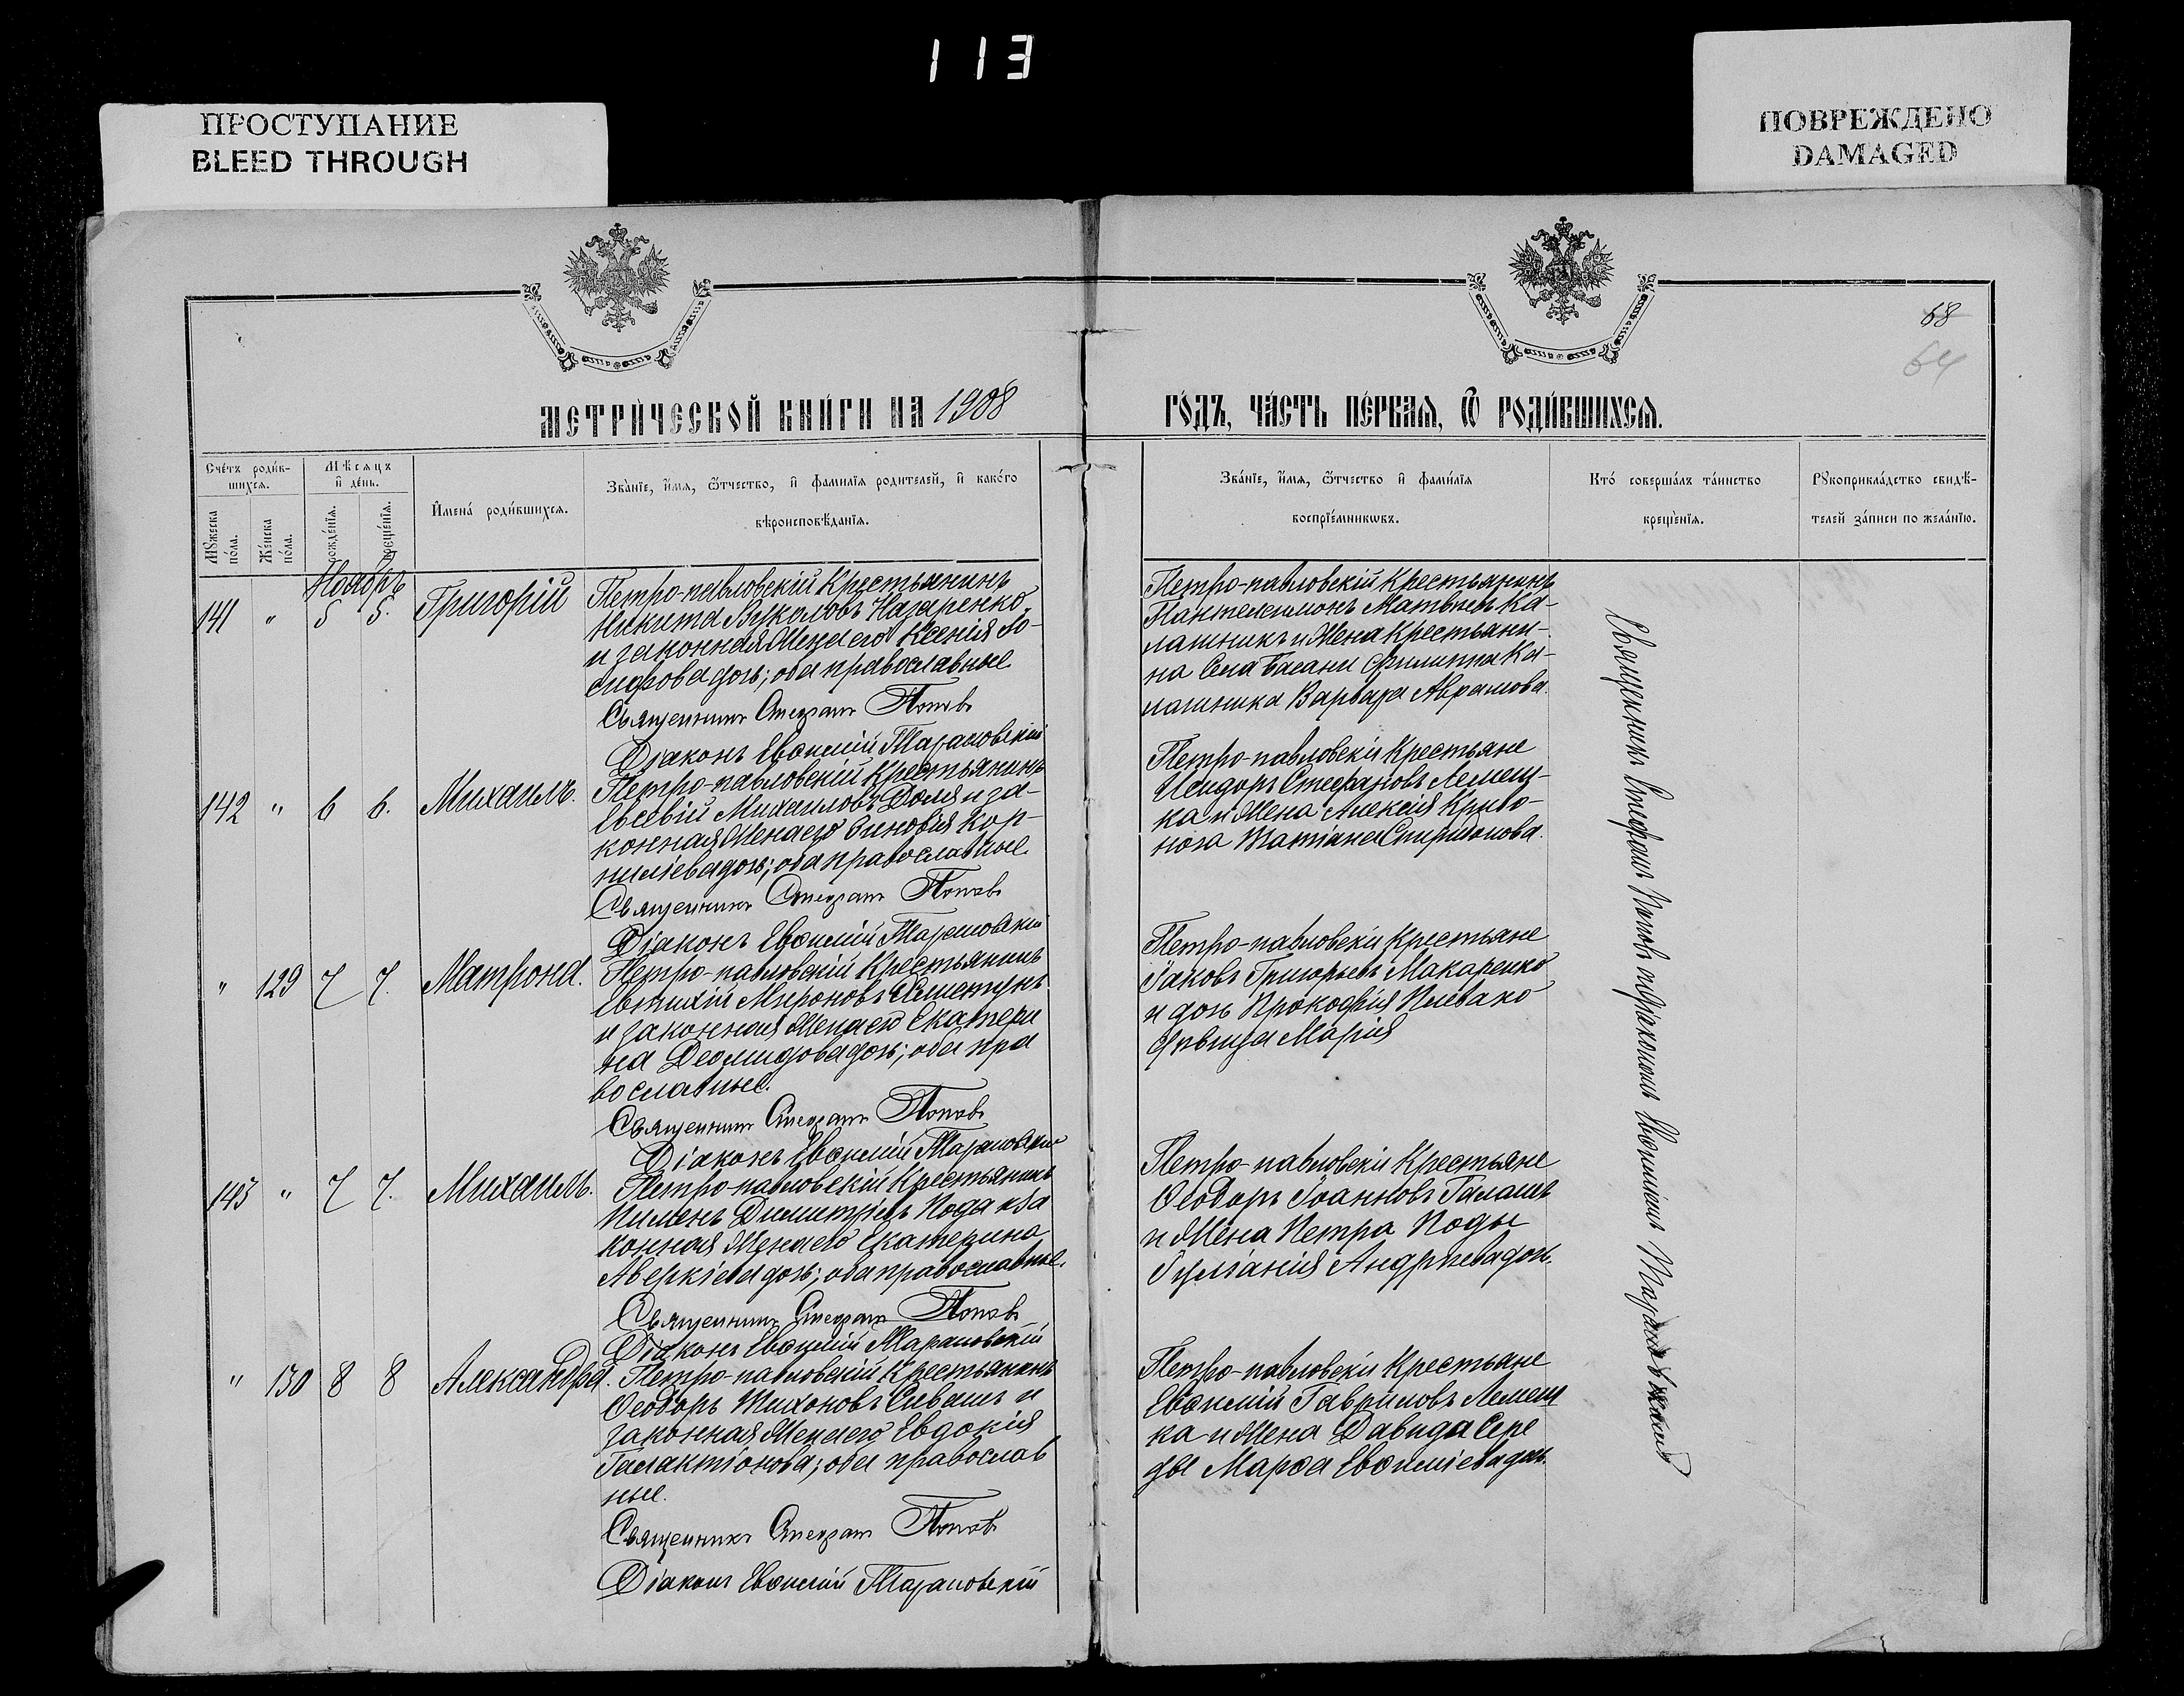 113
ПРОСТУПАНИЕ
BLEED THROUGH
ПОВРЕЖДЕНО
DAMAGED
68
64
МЕТРИ́ЧЕСКОЙ КНИ́ГИ НА 1908
ГО́ДЪ, ЧА́СТЬ ПЕ́РВАѦ, Ѽ РОДИ́ВШИХСѦ.
Сче́тъ роди́в-
шихсѧ.
Мꙋ́жеска
по́ла.
Же́нска
по́ла.
Мѣ́сѧцъ
и҆ де́нь.
рожде́нїѧ.
креще́нїѧ.
И҆мена̀ роди́вшихсѧ.
Зва́нїе, и҆́мѧ, ѻ҆́тчество, и҆ фамилїѧ роди́телей, и҆ како́гѡ
вѣроисповѣ́данїѧ.
Зва́нїе, и҆́мѧ, ѻ҆́тчество и҆ фами́лїѧ
воспрїе́мникѡвъ.
Кто́ соверша́лъ та́инство
креще́нїѧ.
Рꙋкоприкла́дство свидѣ́-
телей за́писи по жела́нїю.
Ноябрь
141 " 5 5. Григорій
Петро-павловскій Крестьянинъ
Никита Вуколовъ Назаренко
и законная Жена его Ксенія Іо-
сифова дочь; оба православные
Священникъ Стефанъ Поповъ
Діаконъ Евѳимій Тарановскій
Петро-павловскій Крестьянинъ
Пантелеимонъ Матвѣевъ Ка-
лашникъ и Жена Крестьяни-
на Села Басани Филиппа Ка-
лашника Варвара Аврамова.
142 " 6 6. Михаилъ.
Петро-павловскій Крестьянинъ
Евсевій Михаиловъ Доля и за-
конная Жена его Зиновія Кор-
ниліева дочь; оба православные
Священникъ Стефанъ Поповъ
Діаконъ Евѳимій Тарановскій
Петро-павловскіи Крестьяне
Исидоръ Стефановъ Лемеш-
ка и Жена Алексія Криво-
носа Татіана Спиридонова.
" 129 7 7. Матрона.
Петро-павловскій Крестьянинъ
Евтихій Мироновъ
и законная Жена его Екатери
на Деомидова дочь; оба пра
вославные.
Священникъ Стефанъ Поповъ
Діаконъ Евѳимій Тарановскій
Петро-павловскіи Крестьяне
Іаковъ Григорьевъ Макаренко
и дочь Прокофія Плевако
дѣвица Марія
143 " 7 7. Михаилъ.
Петро-павловскій Крестьянинъ
Пименъ Димитріевъ Кода и за
конная Жена его Екатерина
Аверкіева дочь; оба православные.
Священникъ Стефанъ Поповъ
Діаконъ Евѳимій Тарановскій
Петро-павловскіи Крестьяне
Ѳеодоръ Іоанновъ Галашъ
и Жена Петра Коды
Іуліанія Андрѣева дочь.
" 130 8 8 Александра.
Петро-павловскій Крестьянинъ
Ѳеодоръ Тихоновъ Сивашъ и
законная Жена его Евдокія
Галактіонова; оба православ
ные.
Священникъ Стефанъ Поповъ
Діаконъ Евѳимій Тарановскій
Петро-павловскіи Крестьяне
Евѳимій Гавриловъ Лемеш
ка и Жена Давида Сере
ды Марѳа Евѳиміева дочь.
Священникъ Стефанъ Поповъ съ діакономъ Евѳиміемъ Тарановскимъ